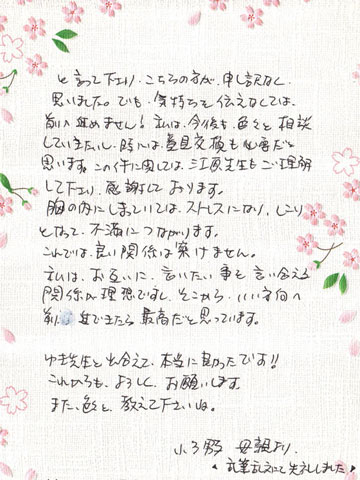 と言って下さり、こちらの方が、申し訳なく
思いました。でも、気持ちを伝えなくては、
前へ進めません！私は、今後も、色々と相談
していきたいし、時には、意見交換も必要だと
思います。この件に関しては、江原先生もご理解
して下さり、感謝しております。
胸の内にしまっていては、ストレスになり、しこり
となって、不満につながります。
これでは、良い関係は築けません。
私は、お互いに、言いたい事を言い合える
関係が理想ですし、そこから、いい方向へ
前進できたら最高だと思っています。
ゆき先生と出会えて、本当に良かったです!!
これからも、よろしく、お願いします。
また、色々と、教えて下さいね。
母親より
乱筆乱文にて失礼しました